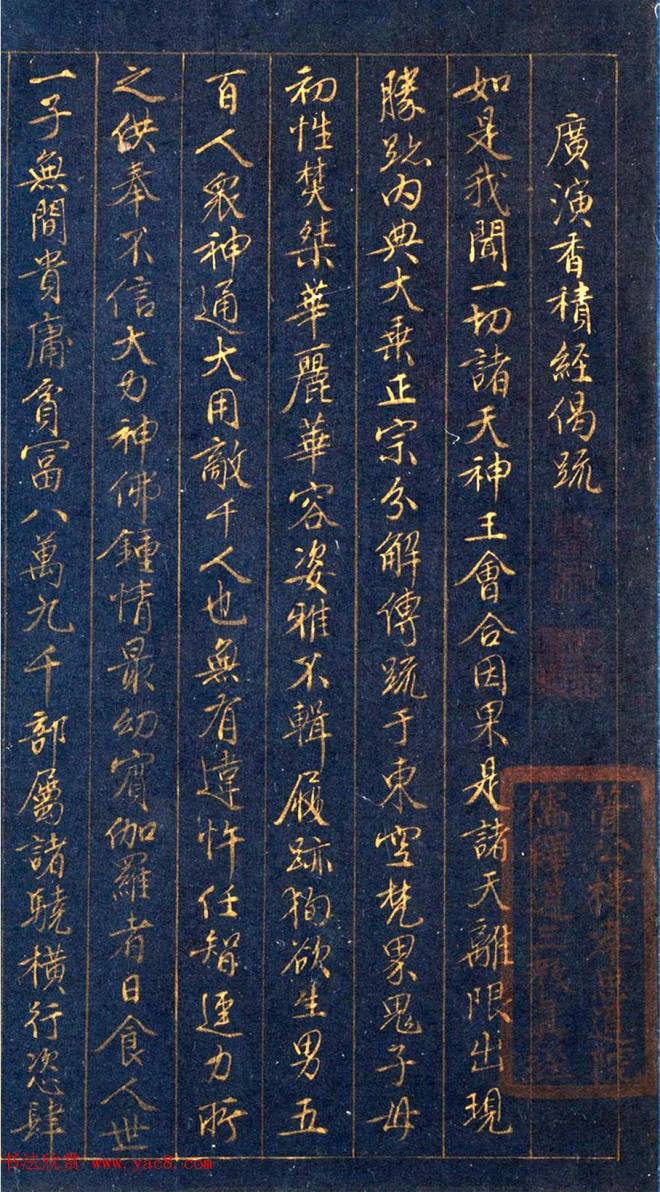 廣演香積經偈疏
如是我聞一切諸天神王會合因果是諸天離限出現
勝跡内典大乗正宗分解傳疏于東空梵果鬼子母
初性焚桀華麗華容姿雅不輯履跡狥欲生男五
百人衆神通大用敵千人也無有違忤任智逞力所
之供奉不信大力神佛鍾情最幼賓伽羅者日食人世
一子無間貴庸貧富八萬九千部屬諸驍橫行恣肆
管公樓孝思道院
儒釋道三教真經
书法欣赏 www.yac8.com